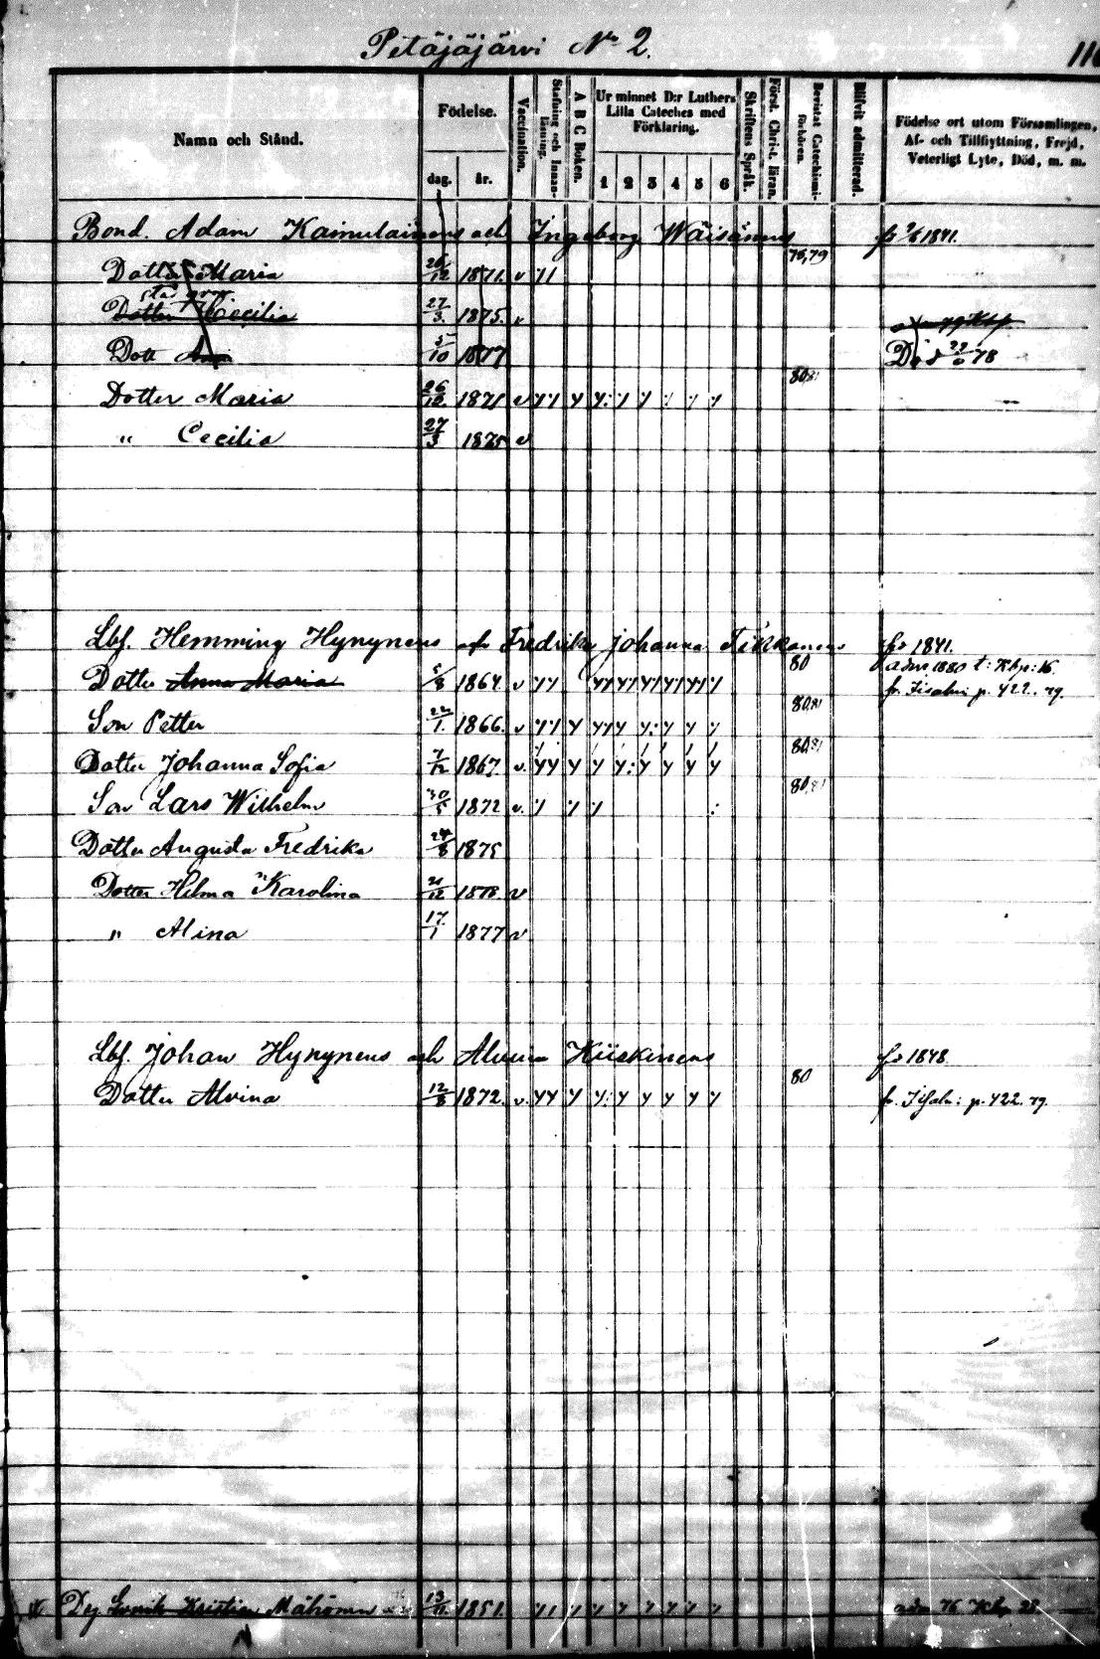 Petäjäjärvi No 2.
116
Namn och Stånd.
Födelse.
dag.
år.
Vaccination.
Stafning och Innanläsning.
A B C Boken.
Ur minnet D:r Luthers Lilla Cateches med Förklaring.
1 2 3 4 5 6
Skriftens Språk.
Först. Christ. läran.
Bevistat Catechismiförhören.
Blifvit admitterad.
Födelse ort utom Församlingen, Af- och Tillflyttning, Frejd, Veterligt Lyte, Död, m. m.
Bond. Adam Kainulainens och Ingeborg Wäisänens 1841.
Dotter Maria 26/12 1871. v 78,79
Dotter Cecilia 27/3. 1875. v
Dott 5/10 1877 Död 78
Dotter Maria 1871 v 80 81
" Cecilia 27/3 1875 v
Lbf. Hemming Hynynens och Fredrika Johanna Tikkanens 1841.
Dotter Anna Maria 5/8 1864 v 80 adm 1880 t: Kbp: 16. fr. Iisalmi p. 422. 79.
Son Petter 22/1. 1866. v 80,81
Dotter Johanna Sofia 7/12 1867. v. 80 81
Son Lars Wilhelm 30/5 1872 v. 80,81
Dotter Augusta Fredrika 24/8 1875
Dotter Hilma Karolina v
" Alina 17/1 1877 v
Lbf. Johan Hynynens och 1848.
Dotter Alvina 12/8 1872. v. 80 fr. Iisalm: p. 422. 79.
1851. adm 76 Kbp